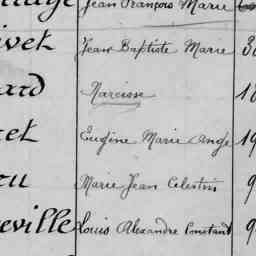 Jean François Marie
ivet Jean Baptiste Marie 3
ard Narcisse 18
et Eugène Marie Ange 19
u Marie Jean Celestin 9
eville Louis Alexandre Constant 9